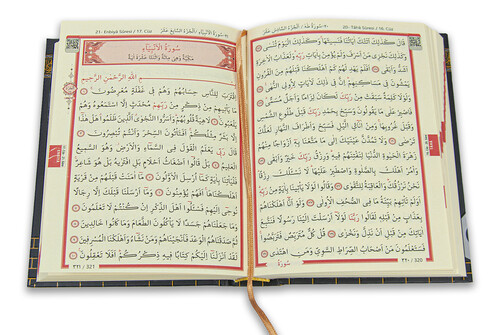 ٢٠-سُورَةُ طٰهٰ / اَلْجُزْءُ السَّادِسَ عَشَرَ 20- Tâhâ Sûresi / 16. Cüz
قَالَ كَذٰلِكَ اَتَتْكَ اٰيَاتُنَا فَنَسِيتَهَا وَكَذٰلِكَ الْيَوْمَ تُنْسٰى
وَكَذٰلِكَ نَجْزِي مَنْ اَسْرَفَ وَلَمْ يُؤْمِنْ بِاٰيَاتِ رَبِّهِ وَلَعَذَابُ الْاٰخِرَةِ
اَشَدُّ وَاَبْقٰى اَفَلَمْ يَهْدِ لَهُمْ كَمْ اَهْلَكْنَا قَبْلَهُمْ مِنَ الْقُرُونِ
يَمْشُونَ فِي مَسَاكِنِهِمْ اِنَّ فِي ذٰلِكَ لَاٰيَاتٍ لِاُولِي النُّهٰى
وَلَوْلَا كَلِمَةٌ سَبَقَتْ مِنْ رَبِّكَ لَكَانَ لِزَامًا وَاَجَلٌ مُسَمًّى
فَاصْبِرْ عَلٰى مَا يَقُولُونَ وَسَبِّحْ بِحَمْدِ رَبِّكَ قَبْلَ طُلُوعِ الشَّمْسِ
وَقَبْلَ غُرُوبِهَا وَمِنْ اٰنَائِ الَّيْلِ فَسَبِّحْ وَاَطْرَافَ النَّهَارِ لَعَلَّكَ
تَرْضٰى وَلَا تَمُدَّنَّ عَيْنَيْكَ اِلٰى مَا مَتَّعْنَا بِهِ اَزْوَاجًا مِنْهُمْ
زَهْرَةَ الْحَيٰوةِ الدُّنْيَا لِنَفْتِنَهُمْ فِيهِ وَرِزْقُ رَبِّكَ خَيْرٌ وَاَبْقٰى
وَأْمُرْ اَهْلَكَ بِالصَّلٰوةِ وَاصْطَبِرْ عَلَيْهَا لَا نَسْـَٔلُكَ رِزْقًا
نَحْنُ نَرْزُقُكَ وَالْعَاقِبَةُ لِلتَّقْوٰى وَقَالُوا لَوْلَا يَأْتِينَا بِاٰيَةٍ مِنْ رَبِّهِ
اَوَلَمْ تَأْتِهِمْ بَيِّنَةُ مَا فِي الصُّحُفِ الْاُولٰى وَلَوْ اَنَّا اَهْلَكْنَاهُمْ
بِعَذَابٍ مِنْ قَبْلِهِ لَقَالُوا رَبَّنَا لَوْلَا اَرْسَلْتَ اِلَيْنَا رَسُولًا فَنَتَّبِعَ
اٰيَاتِكَ مِنْ قَبْلِ اَنْ نَذِلَّ وَنَخْزٰى قُلْ كُلٌّ مُتَرَبِّصٌ فَتَرَبَّصُوا
فَسَتَعْلَمُونَ مَنْ اَصْحَابُ الصِّرَاطِ السَّوِيِّ وَمَنِ اهْتَدٰى
٣٢٠ / 320
21- Enbiyâ Sûresi / 17. Cüz ٢١-سُورَةُ الْاَنْبِيَاءِ / اَلْجُزْءُ السَّابِعَ عَشَرَ
سُورَةُ الْاَنْبِيَاءِ
مَكِّيَّةٌ وَهِيَ مِائَةٌ وَاثْنَتَا عَشْرَةَ اٰيَةً
بِسْمِ اللّٰهِ الرَّحْمٰنِ الرَّحِيمِ
اِقْتَرَبَ لِلنَّاسِ حِسَابُهُمْ وَهُمْ فِي غَفْلَةٍ مُعْرِضُونَ
مَا يَأْتِيهِمْ مِنْ ذِكْرٍ مِنْ رَبِّهِمْ مُحْدَثٍ اِلَّا اسْتَمَعُوهُ وَهُمْ
يَلْعَبُونَ لَاهِيَةً قُلُوبُهُمْ وَاَسَرُّوا النَّجْوَى الَّذِينَ ظَلَمُوا هَلْ هٰذَا
اِلَّا بَشَرٌ مِثْلُكُمْ اَفَتَأْتُونَ السِّحْرَ وَاَنْتُمْ تُبْصِرُونَ
قَالَ رَبِّي يَعْلَمُ الْقَوْلَ فِي السَّمَاءِ وَالْاَرْضِ وَهُوَ السَّمِيعُ
الْعَلِيمُ بَلْ قَالُوا اَضْغَاثُ اَحْلَامٍ بَلِ افْتَرٰيهُ بَلْ هُوَ شَاعِرٌ
فَلْيَأْتِنَا بِاٰيَةٍ كَمَا اُرْسِلَ الْاَوَّلُونَ مَا اٰمَنَتْ قَبْلَهُمْ مِنْ قَرْيَةٍ
اَهْلَكْنَاهَا اَفَهُمْ يُؤْمِنُونَ وَمَا اَرْسَلْنَا قَبْلَكَ اِلَّا رِجَالًا
نُوحِي اِلَيْهِمْ فَسْـَٔلُوا اَهْلَ الذِّكْرِ اِنْ كُنْتُمْ لَا تَعْلَمُونَ
وَمَا جَعَلْنَاهُمْ جَسَدًا لَا يَأْكُلُونَ الطَّعَامَ وَمَا كَانُوا خَالِدِينَ
ثُمَّ صَدَقْنَاهُمُ الْوَعْدَ فَاَنْجَيْنَاهُمْ وَمَنْ نَشَاءُ وَاَهْلَكْنَا الْمُسْرِفِينَ
لَقَدْ اَنْزَلْنَا اِلَيْكُمْ كِتَابًا فِيهِ ذِكْرُكُمْ اَفَلَا تَعْقِلُونَ
٣٢١ / 321